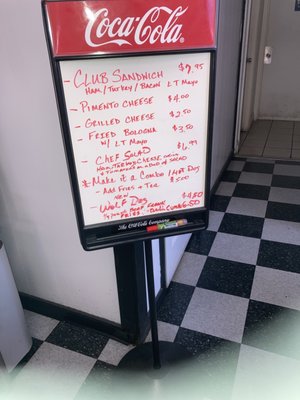 Coca-Cola
- Club Sandwich $7.95
Ham/Turkey/Bacon LT Mayo
- Pimento Cheese $4.00
- Grilled Cheese $2.50
- Fried Bologna $3.50
w/ LT Mayo
- Chef Salad $6.99
Ham, Turkey, Cheese,
& Tomatoes on a Bed of
* Make it a Combo
- Add Fries + Tea $5.00
New
- Wolf Dog $4.50
Fries
The Coca-Cola Company